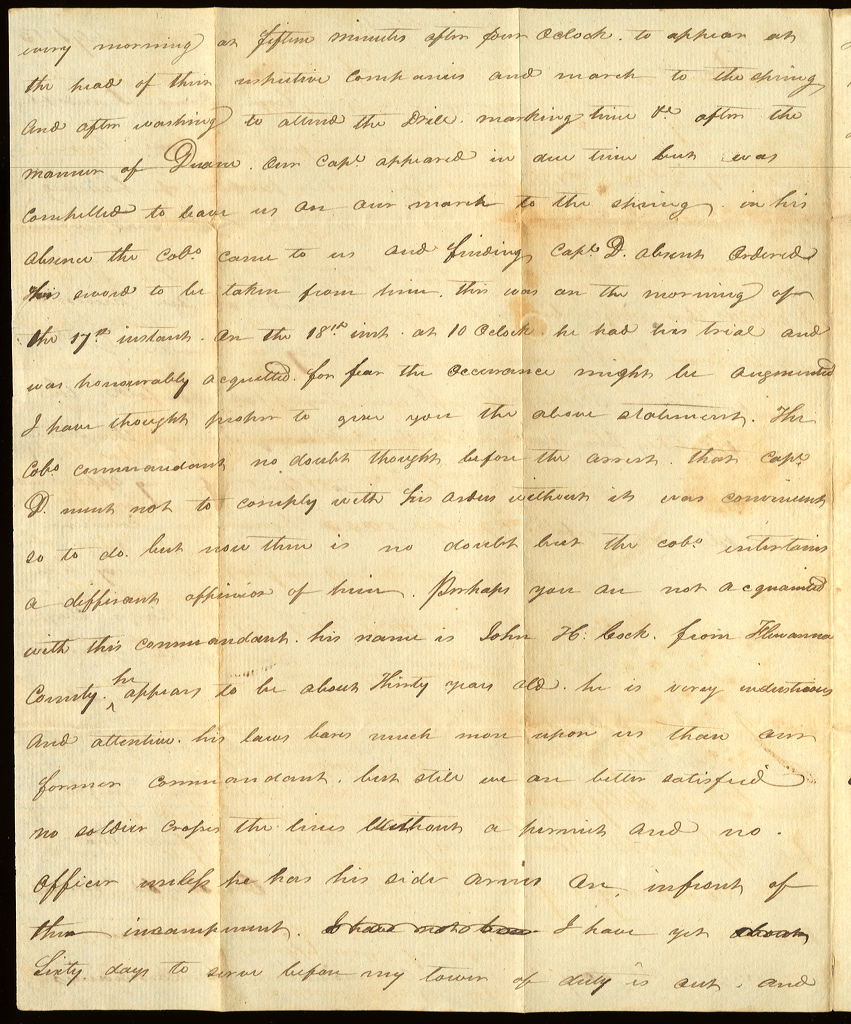 every morning at fifteen minutes after four Oclock. to appear at
the head of their respective Companies and march to the spring
And after washing to attend the Drill. marking time &c after the
manner of Duane. Our Capt. appeared in due time but was
Compelled to leave us on our march to the spring. in his
absence the Colo. came to us and finding Capt. D. absent Ordered
His sword to be taken from him. this was on the morning of
the 17th instant. On the 18th inst. at 10 Oclock he had his trial and
was honourably acquitted. for fear the Occurrance might be augmented
I have thought proper to give you the above statement. The
Colo. commandant no doubt thought before the arrest. that Capt.
D. ment not to comply with his orders without it was convenient
so to do. but now there is no doubt but the colo. entertains
a differant oppinion of him. Perhaps you are not acquainted
with this commandant. his name is John H. Cock. from Fluvanna
County. he appears to be about Thirty years old. he is very industrious
And attentive. his laws bares much more upon us than our
former Commandant. but still we are better satisfied
no soldier crosses the lines Without a permit and no.
Officer unless he has his side arms on, infront of
the incampment. I have not been I have yet about
Sixty days to serve before my tower of duty is out. and